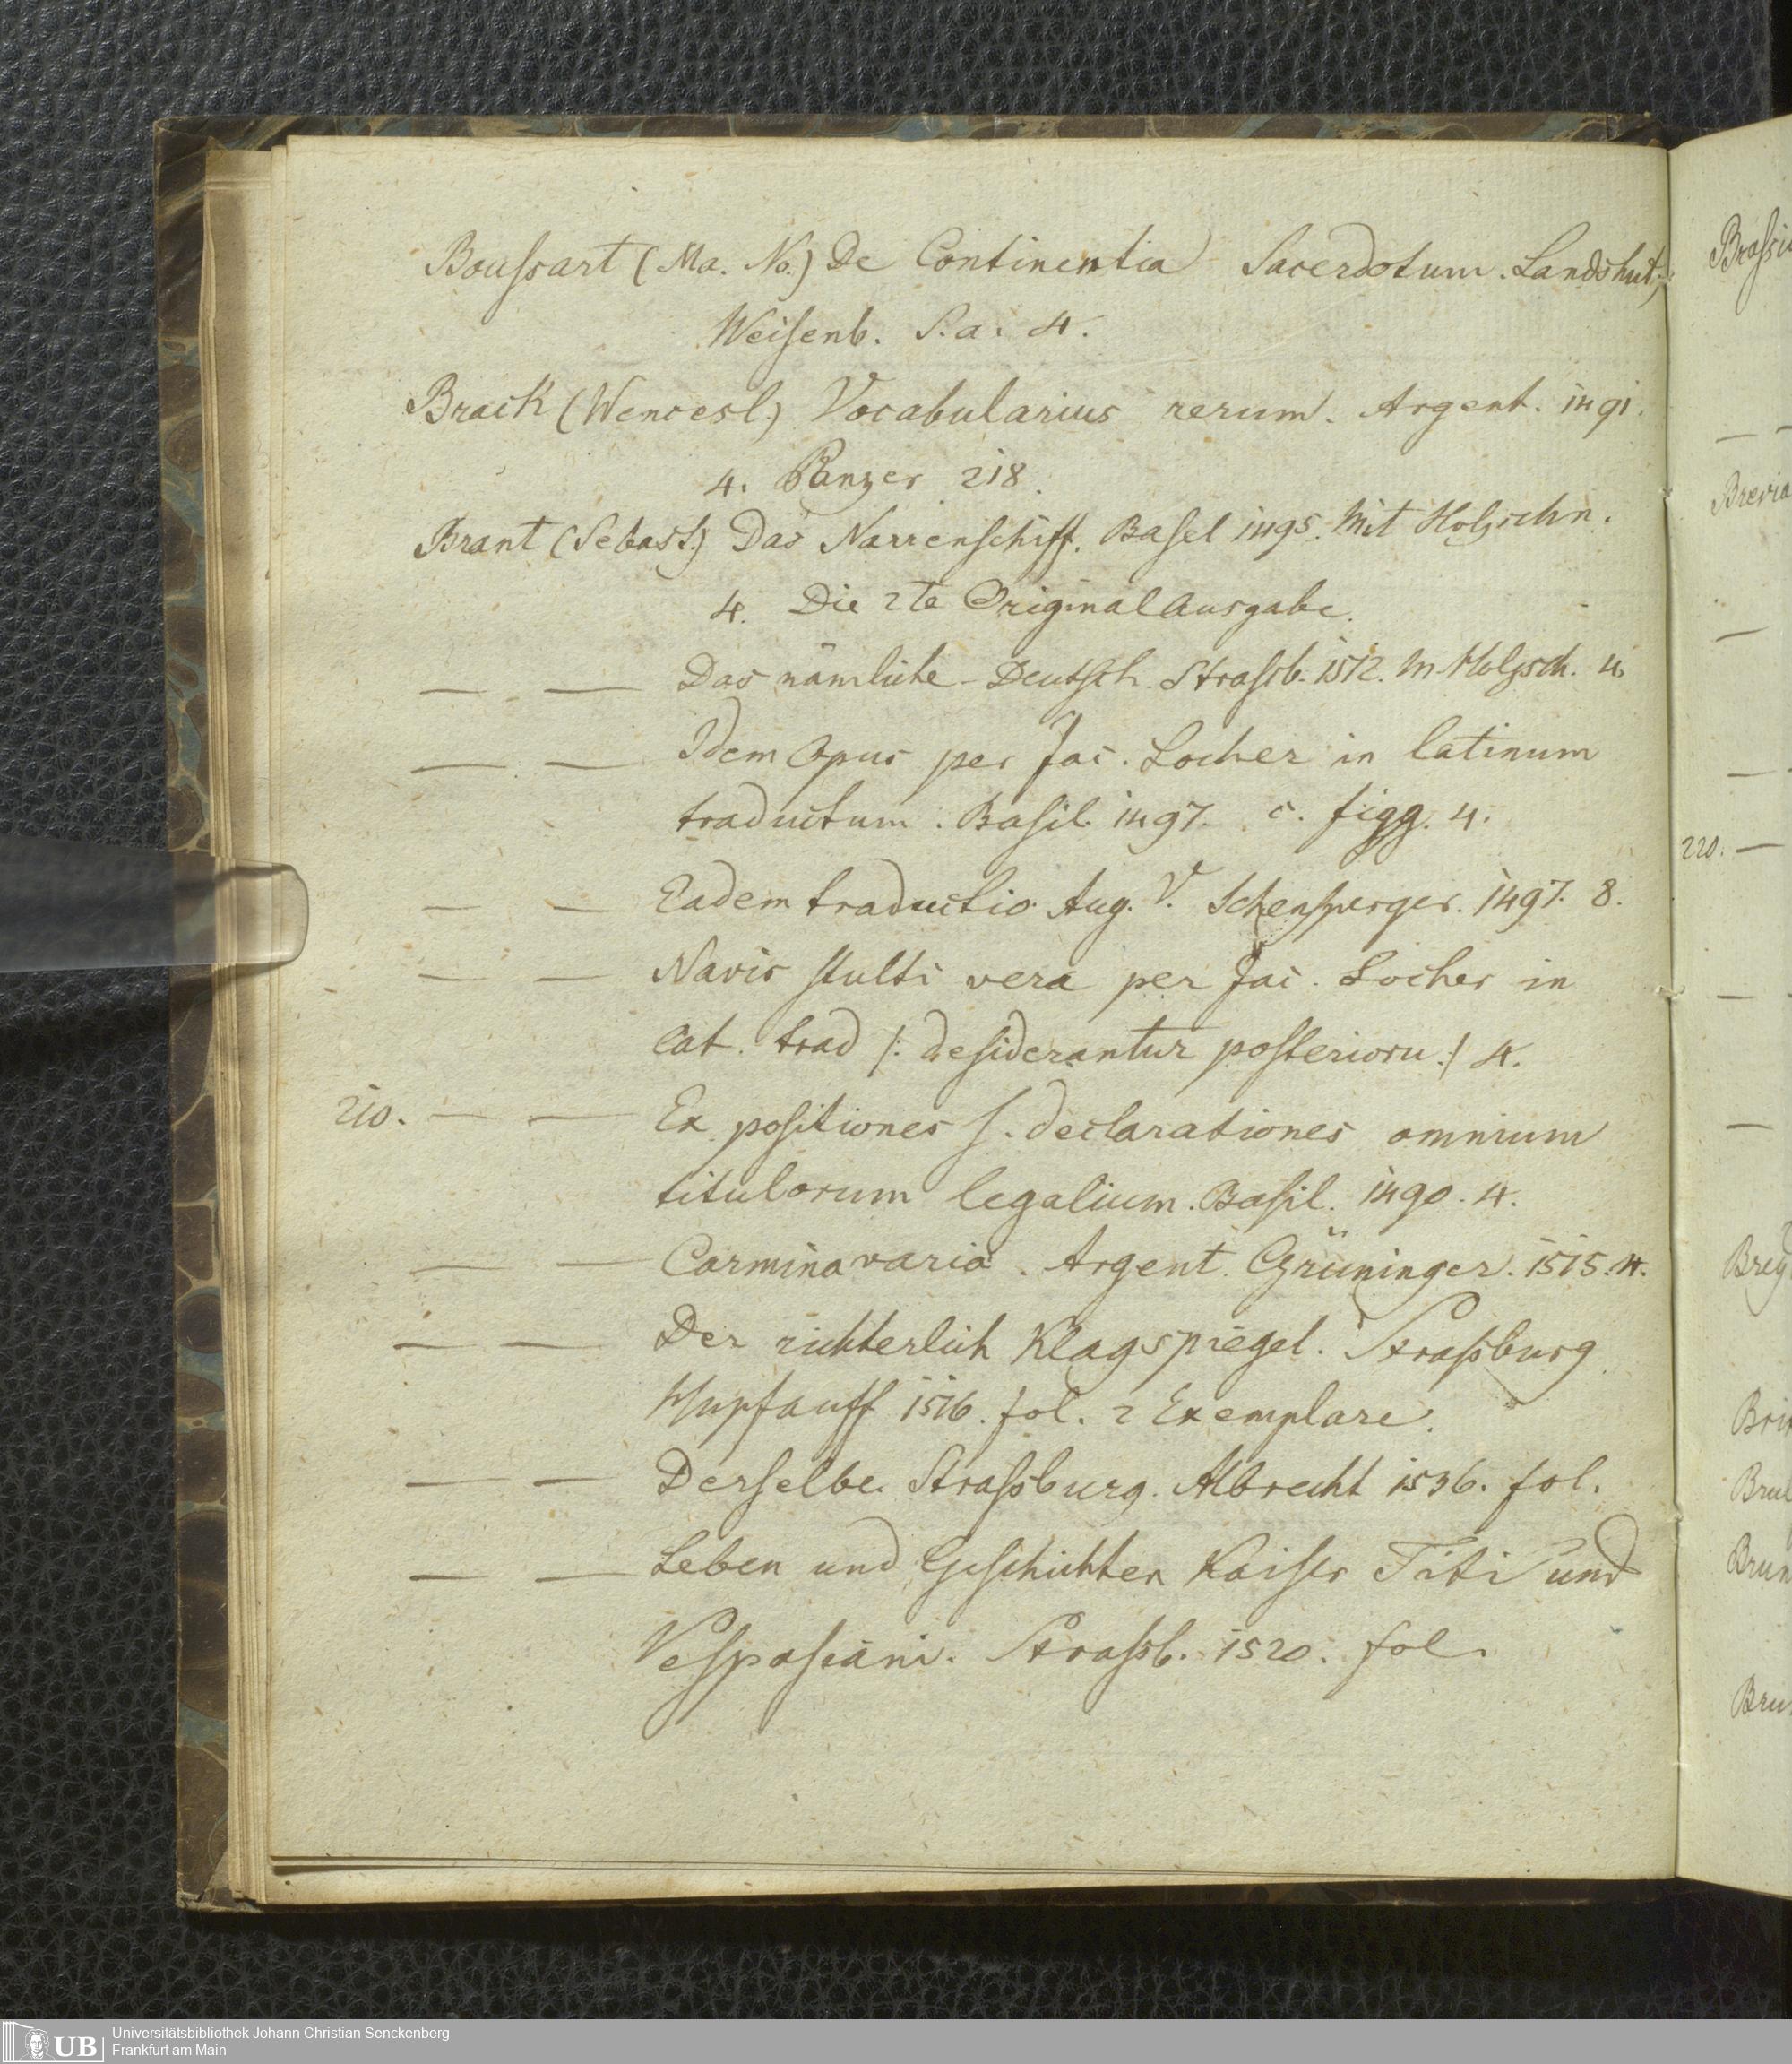 Boussart (Ma. No.) De Continentia Sacerdotum. Landshut,
Weisenb. S. a. 4.
Brack (Wencesl.) Vocabularius rerum. Argent. 1491.
4. Panzer 218.
Brant (Sebast.) Das Narrenschiff. Basel 1495. Mit Holzschn.
4. Die 2te Original Ausgabe.
— — Das nämliche Deutsch. Strassb. 1512. m. Holzsch. 4.
— — Idem opus per Jac. Locher in latinum
traductum. Basil. 1497. c. figg. 4.
— — Eadem traductio Aug. V. Schensperger. 1497. 8.
— — Navis stulti vera per Jac. Locher in
Lat. trad /: desiderantur posterioru :/ 4.
210. — — Expositiones s. declarationes omnium
titulorum legalium. Basil. 1490. 4.
— — Carmina varia. Argent. Grüninger. 1515. 4.
— — Der richterlich Klagspiegel. Straßburg
Hupfauff 1516. fol. 2 Exemplare.
— — Derselbe. Strassburg. Albrecht 1536. fol.
— — Leben und Geschichten Kaiser Titi und
Vespasiani. Strassb. 1520. fol.
220. —
Universitätsbibliothek Johann Christian Senckenberg
UB Frankfurt am Main